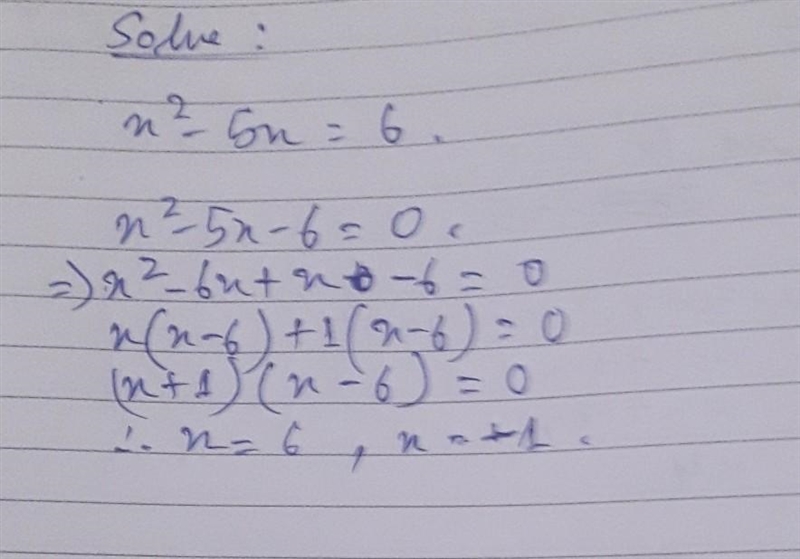 Solve :
x² - 5x = 6.
x² - 5x - 6 = 0.
⇒) x² - 6x + x - 6 = 0
x(x-6) + 1(x-6) = 0
(x+1)(x-6) = 0
∴ x = 6, x = -1.